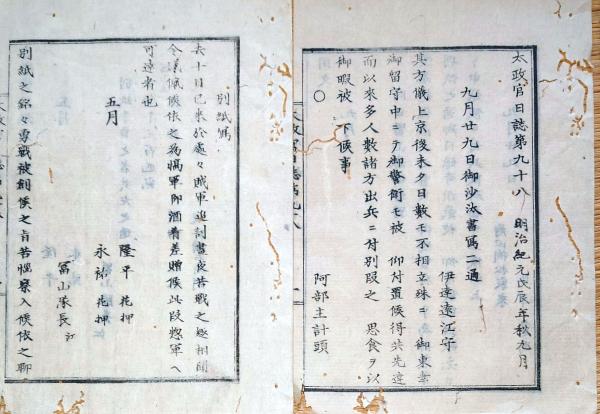 太政官日誌第九十八 明治紀元戊辰年秋九月
九月廿九日御沙汰書寫二通
伊達遠江守
其方儀上京後未タ日數モ不相立殊ニ 御東幸
御留守中ニテ御警衛モ被 仰付置候得共先達
而以來多人數諸方出兵ニ付別段之 思食ヲ以
御暇被 下候事
○
阿部主計頭
別紙寫
去十日已來於處々賊軍進討晝夜苦戰之趣相聞
令感佩候依之為犒軍即酒肴差贈候此段惣軍ヘ
可達者也
五月
隆平 花押
永祐 花押
冨山隊長ヘ
別紙之銘々勇戰被創候之旨苦惱察入候依之聊